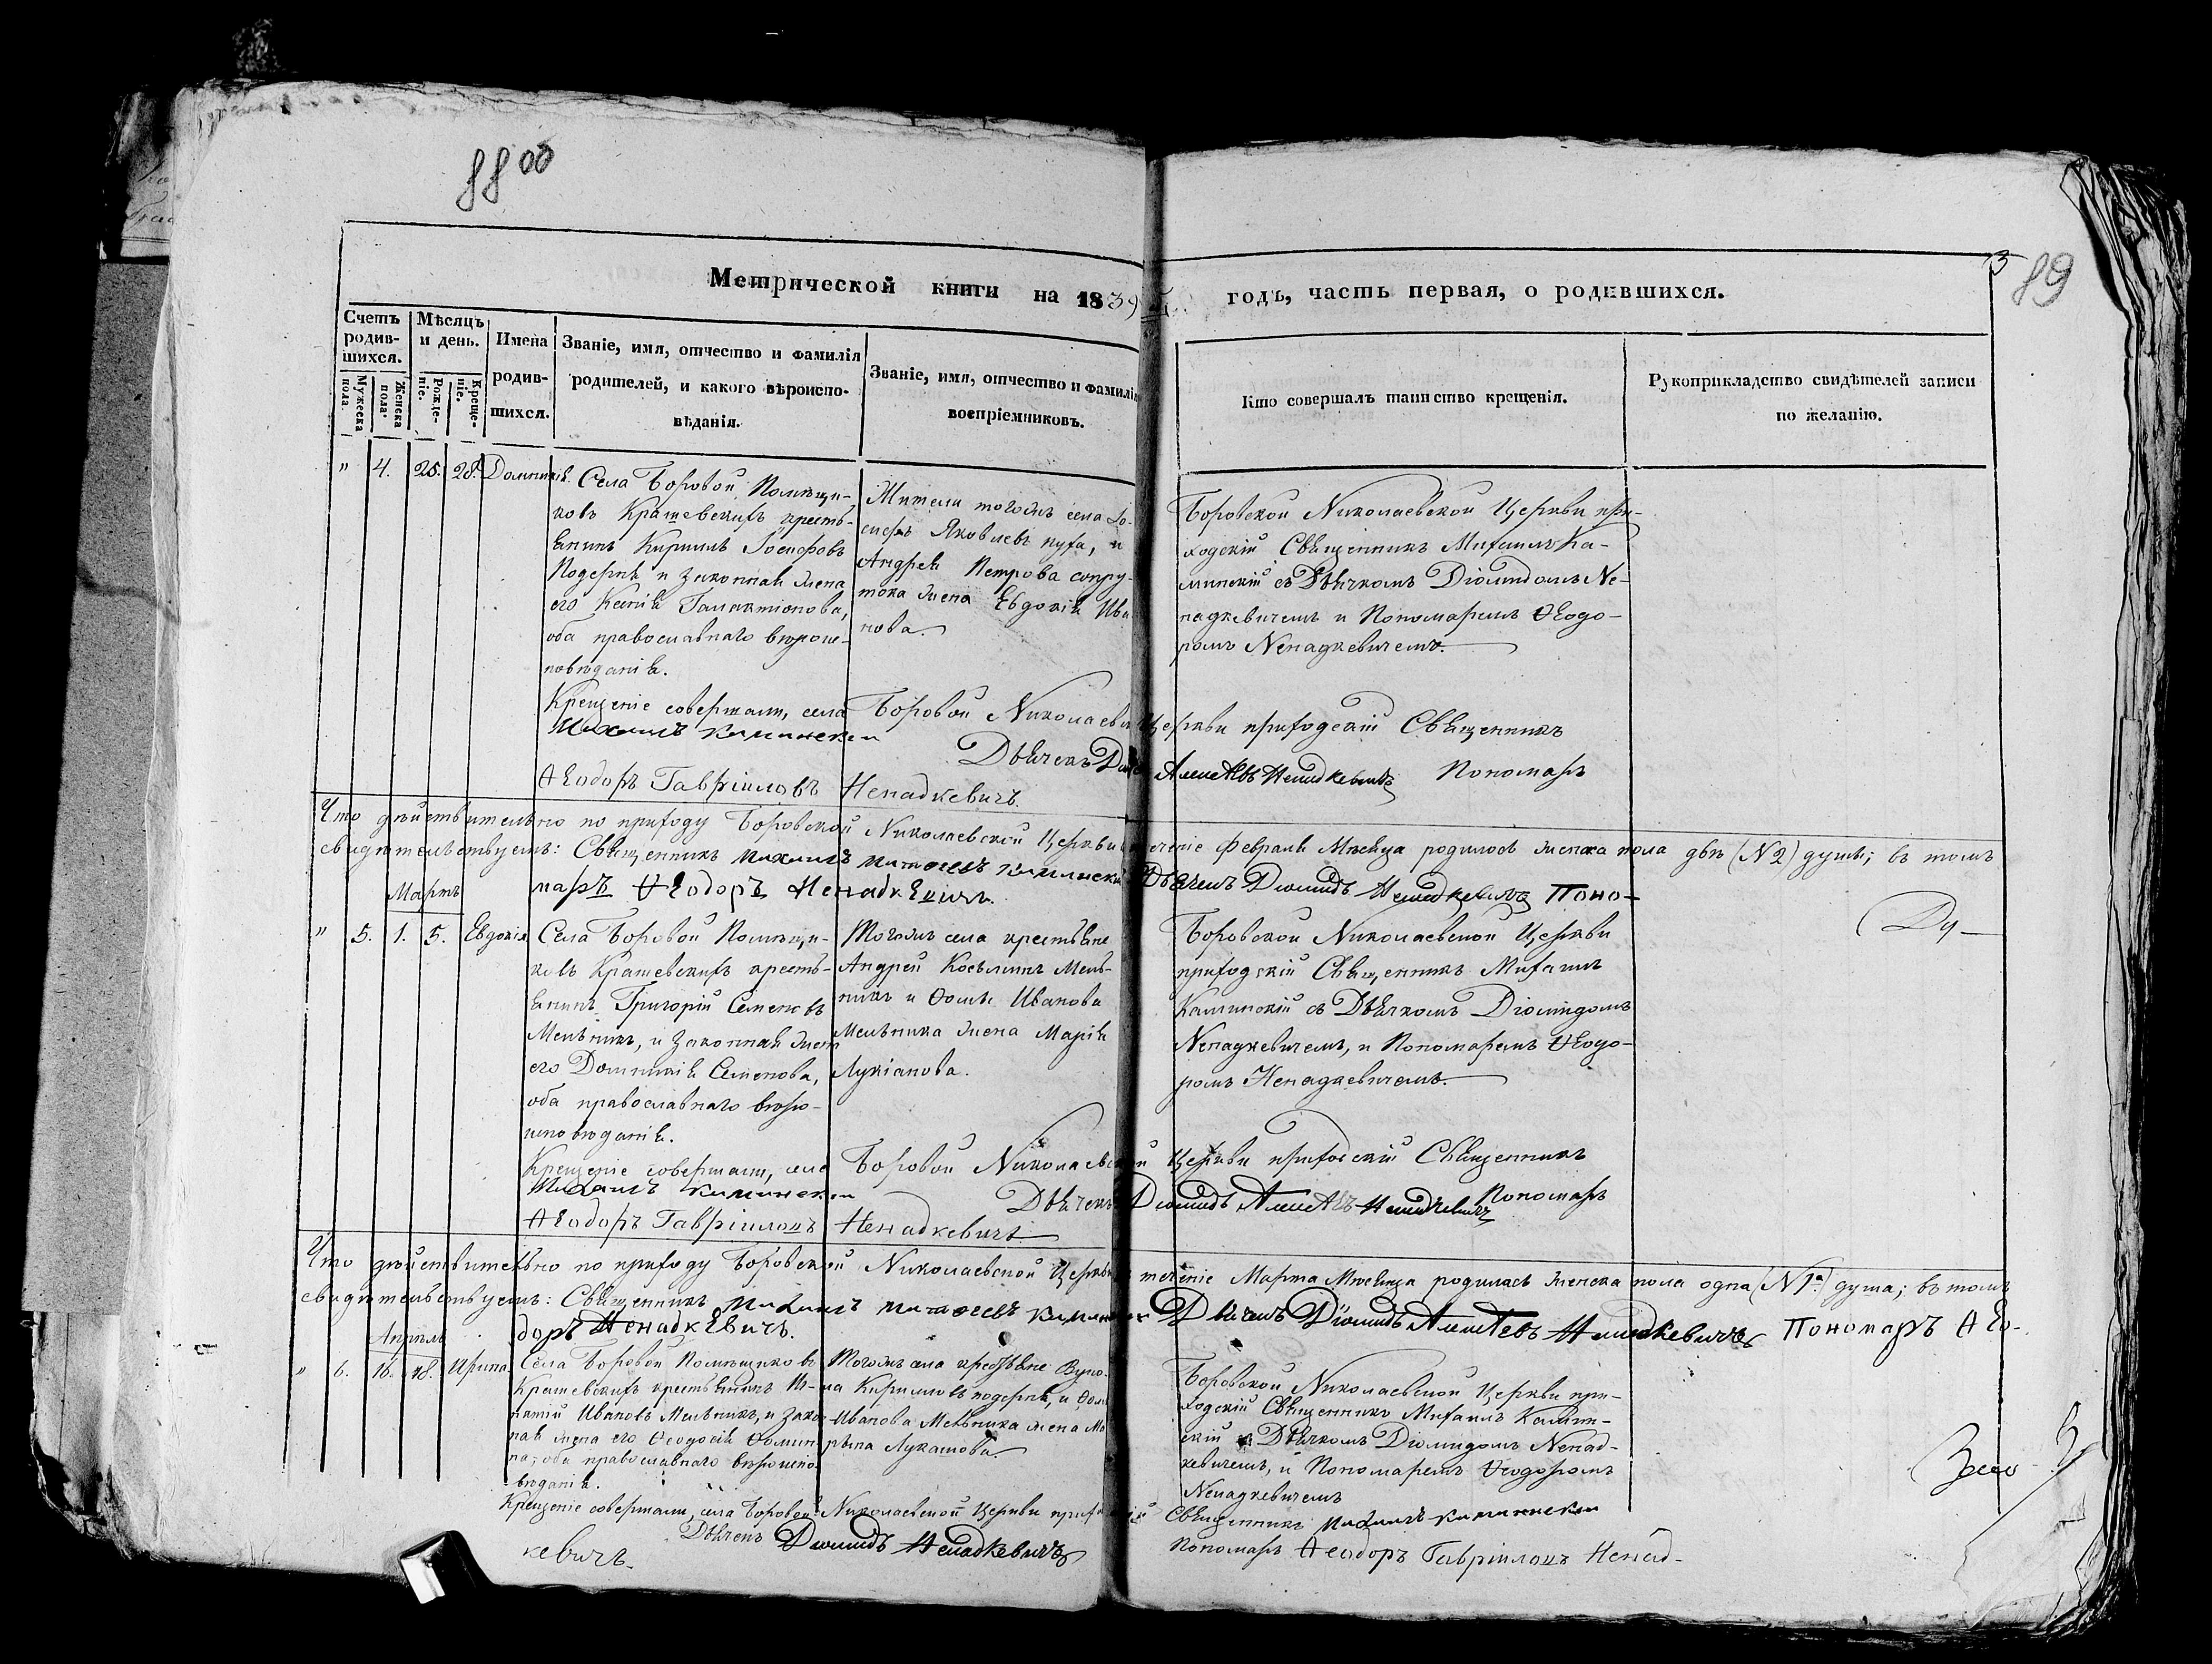 88 об
89
3
Метрической книги на 1839 годъ, часть первая, о родившихся.
Счетъ родив-
шихся.
Мужеска пола.
Женска пола.
Мѣсяцъ
и день.
Рожде-
ніе.
Креще-
ніе.
Имена
родив-
шихся.
Званіе, имя, отчество и фамилія
родителей, и какого вѣроиспо-
вѣданія.
Званіе, имя, отчество и фамилія
воспріемниковъ.
Кто совершалъ таинство крещенія.
Рукоприкладство свидѣтелей записи
по желанію.
" 4. 25. 28. Домникія.
Села Боровой Помѣщи-
ковъ Крашевскихъ кресть-
янинъ Кириллъ Іосифовъ
Подерня и законная жена
его Ксенія Галактіонова,
оба православнаго вѣроис-
повѣданія.
Жители тогожъ села Іо-
сифъ Яковлевъ, и
Андрея Петрова
жена Евдокія Ива
нова.
Боровской Николаевской Церкви при-
ходскій Священникъ Михаилъ Ка-
минскій съ Дьячкомъ Діомидомъ Не-
надкевичемъ и Пономаремъ Ѳеодо-
ромъ Ненадкевичемъ.
Крещеніе совершали, села Боровой Николаевской Церкви приходскій Священникъ
Михаилъ Каминскій
Дьячекъ Діомидъ Алексѣевъ Ненадкевичъ Пономарь
Ѳеодоръ Гавріиловъ Ненадкевичъ.
Что дѣйствительно по приходу Боровской Николаевской Церкви въ теченіе Февраля Мѣсяца родилось женска пола двѣ (№ 2) души; въ томъ
свидѣтельствуемъ: Священникъ Михаилъ Матѳеевъ Каминскій Дьячекъ Діомидъ Ненадкевичъ Поно-
марь Ѳеодоръ Ненадкевичъ.
Мартъ
" 5. 1. 5. Евдокія
Села Боровой Помѣщи-
ковъ Крашевскихъ кресть-
янинъ Григорій Семеновъ
Мельникъ, и законная жена
его Домникія Семенова,
оба православнаго вѣро-
исповѣданія.
Тогожъ села крестьяне
Андрей Косьминъ Мель-
никъ и Ѳомы Иванова
Мельника жена Марія
Лукіанова.
Боровской Николаевской Церкви
приходскій Священникъ Михаилъ
Каминскій съ Дьячкомъ Діомидомъ
Ненадкевичемъ, и Пономаремъ Ѳеодо-
ромъ Ненадкевичемъ.
Ду-
Крещеніе совершали, села Боровой Николаевской Церкви приходскій Священникъ
Михаилъ Каминскій
Дьячекъ Діомидъ Алексѣевъ Ненадкевичъ Пономарь
Ѳеодоръ Гавріиловъ Ненадкевичъ
Что дѣйствительно по приходу Боровской Николаевской Церкви въ теченіе Марта Мѣсяца родилась женска пола одна (№ 1а) душа; въ томъ
свидѣтельствуемъ: Священникъ Михаилъ Матѳеевъ Каминскій Дьячекъ Діомидъ Алексѣевъ Ненадкевичъ Пономарь Ѳео-
доръ Ненадкевичъ.
Апрѣль
" 6. 16. 18. Ирина.
Села Боровой Помѣщиковъ
Крашевскихъ крестьянинъ Иг-
натій Ивановъ Мельникъ, и закон-
ная жена его Ѳеодосія Ѳомин-
на, оба православнаго вѣроиспо-
вѣданія.
Тогожъ села крестьяне Вуко-
ла Кирилловъ подерня, и Ѳомы
Иванова Мельника жена Ма
рина Лукашова.
Боровской Николаевской Церкви при-
ходскій Священникъ Михаилъ Камин-
скій съ Дьячкомъ Діомидомъ Ненад-
кевичемъ, и Пономаремъ Ѳеодоромъ
Ненадкевичемъ
Крещеніе совершали, села Боровой Николаевской Церкви приходскій Священникъ Михаилъ Каминскій
Дьячекъ Діомидъ Ненадкевичъ Пономарь Ѳеодоръ Гавріиловъ Ненад-
кевичъ.